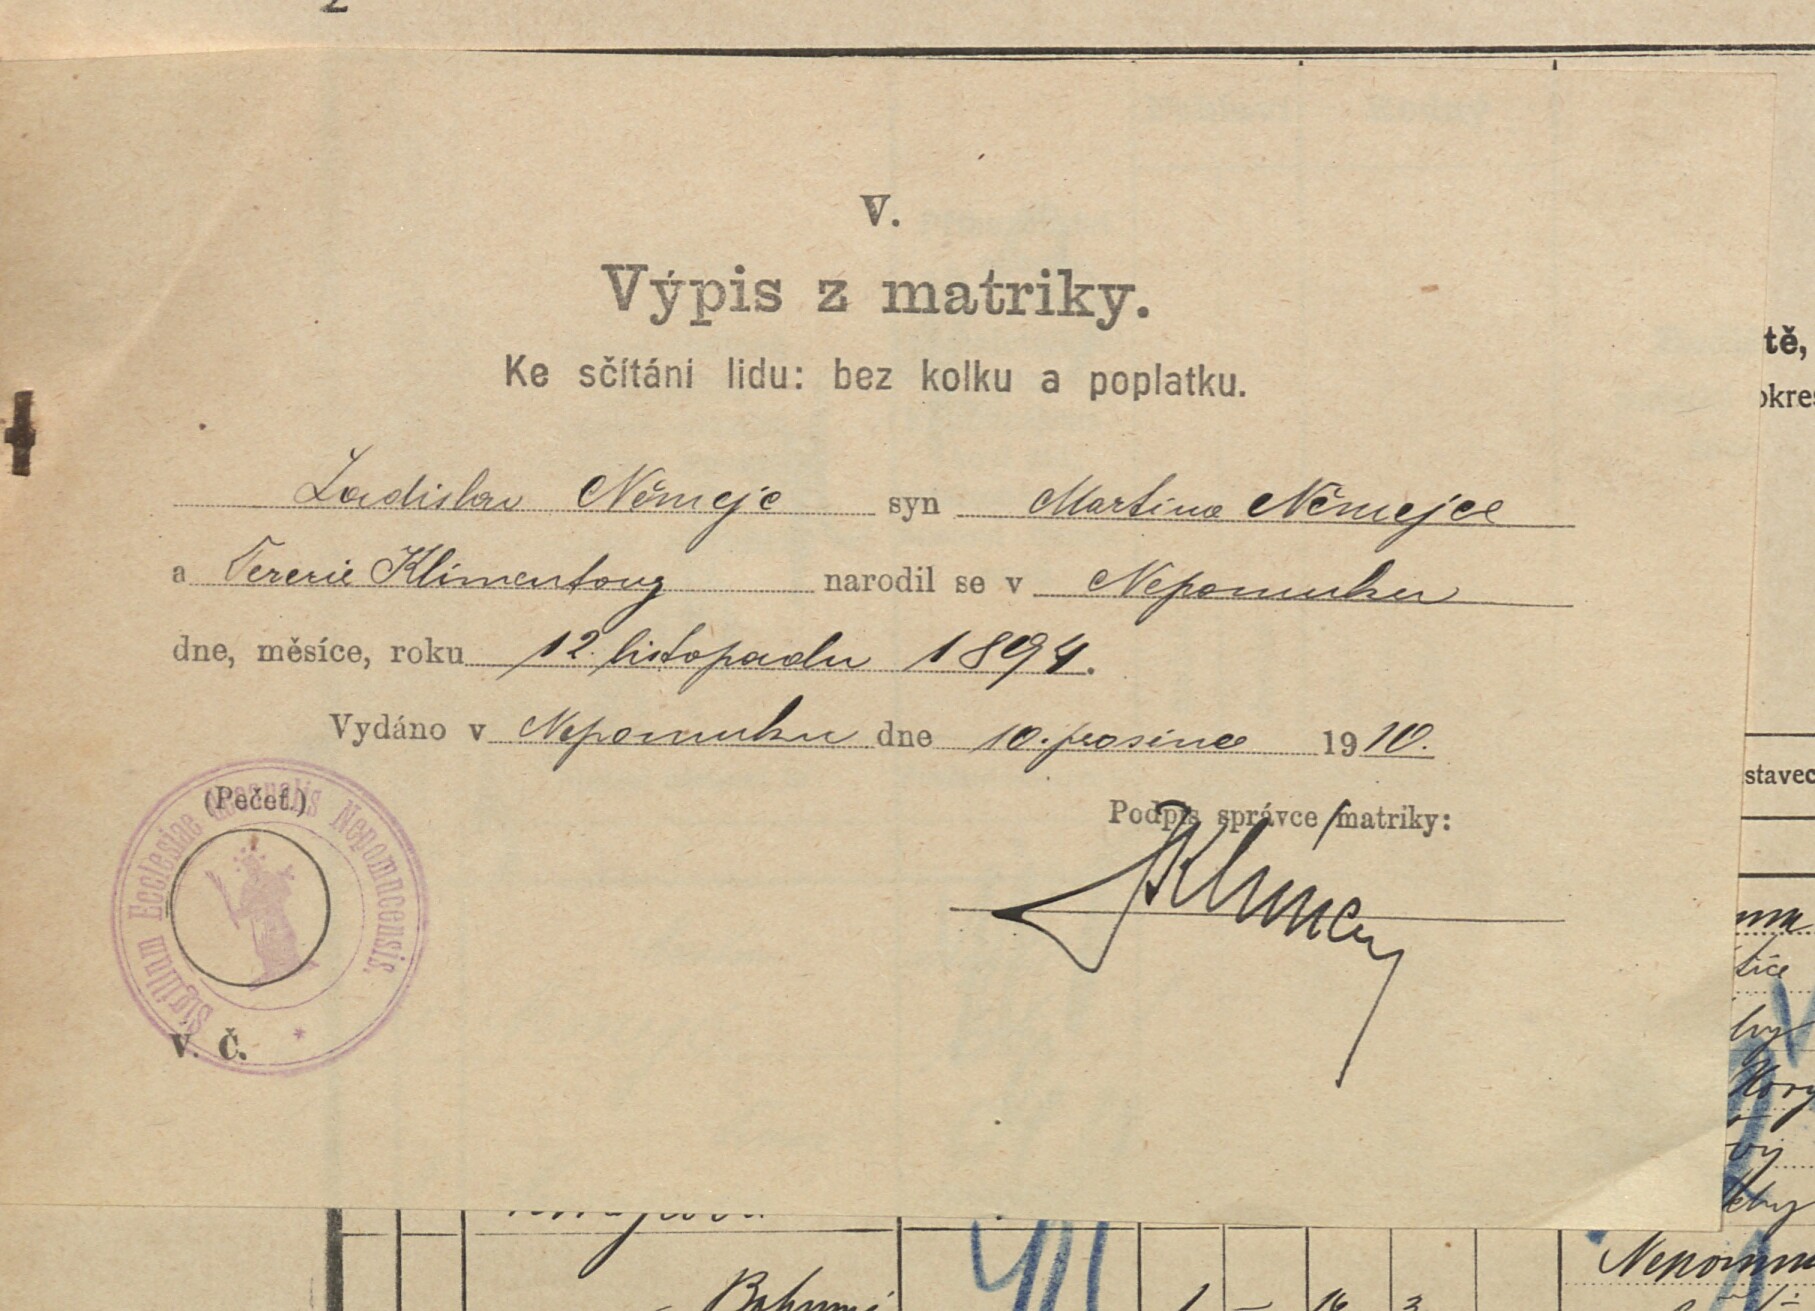 V.
Výpis z matriky.
Ke sčítání lidu: bez kolku a poplatku.
Ladislav Němejc syn Martina Němejce
a Terezie Klimentovy narodil se v Nepomuku
dne, měsíce, roku 12. listopadu 1894.
Vydáno v Nepomuku dne 10. prosince 1910.
(Pečeť.)
Sigillum Ecclesiae Decanalis Nepomucensis.
Podpis správce matriky:
V. Č.
tě,
okres
stavec
Nepomu
Bohumi
1 – 16 3